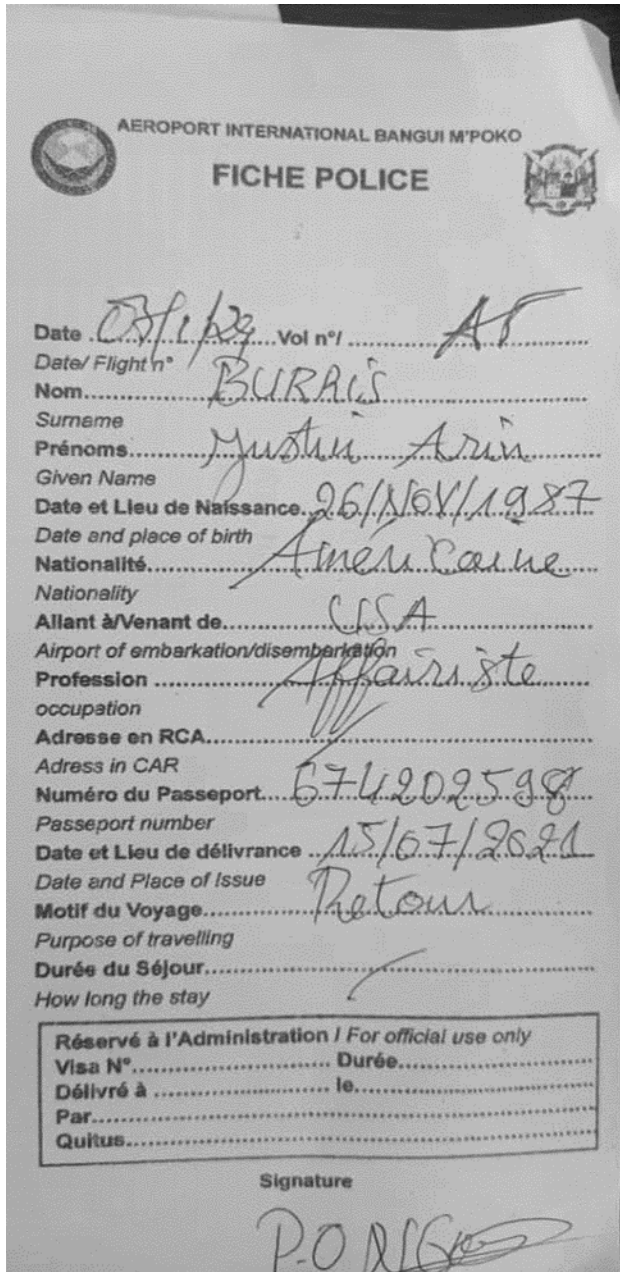 AEROPORT INTERNATIONAL BANGUI M'POKO
FICHE POLICE
Date ...... Vol n°/ ...... AF
Date/ Flight n°
Nom...... BURRIS
Surname
Prénoms...... Justin Arin
Given Name
Date et Lieu de Naissance..26/NOV/1987
Date and place of birth
Nationalité...... Américaine
Nationality
Allant à/Venant de...... USA
Airport of embarkation/disembarkation
Profession ...... Affairiste
occupation
Adresse en RCA......
Adress in CAR
Numéro du Passeport.... 674202598
Passeport number
Date et Lieu de délivrance ..15/07/2021
Date and Place of Issue
Motif du Voyage...... Retour
Purpose of travelling
Durée du Séjour......
How long the stay
Réservé à l'Administration / For official use only
Visa N°...... Durée......
Délivré à ...... le......
Par......
Quitus......
Signature
P.O